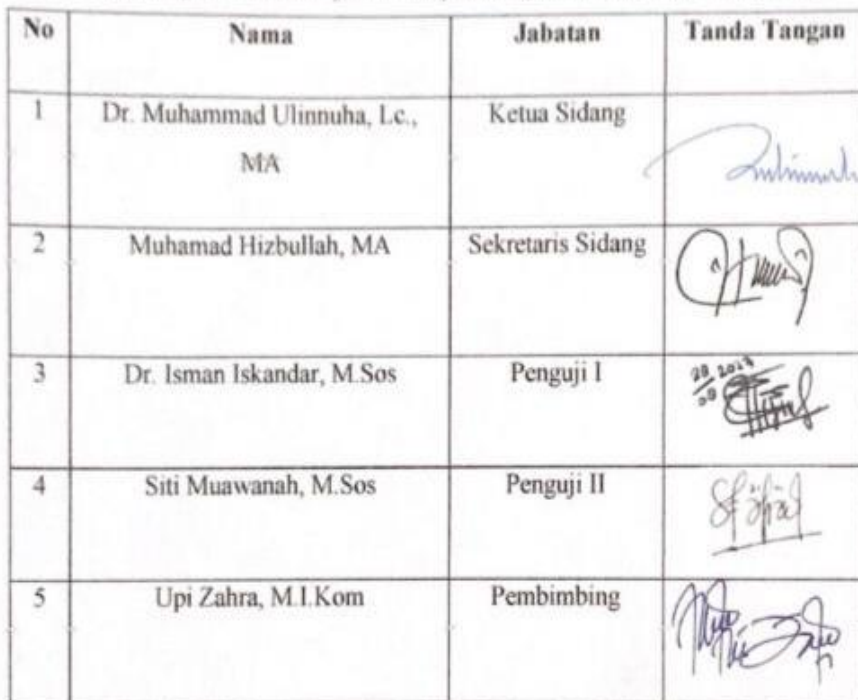 No Nama Jabatan Tanda Tangan
1 Dr. Muhammad Ulinnuha, Lc., Ketua Sidang
MA
2 Muhamad Hizbullah, MA Sekretaris Sidang
3 Dr. Isman Iskandar, M.Sos Penguji I
4 Siti Muawanah, M.Sos Penguji II
5 Upi Zahra, M.I.Kom Pembimbing